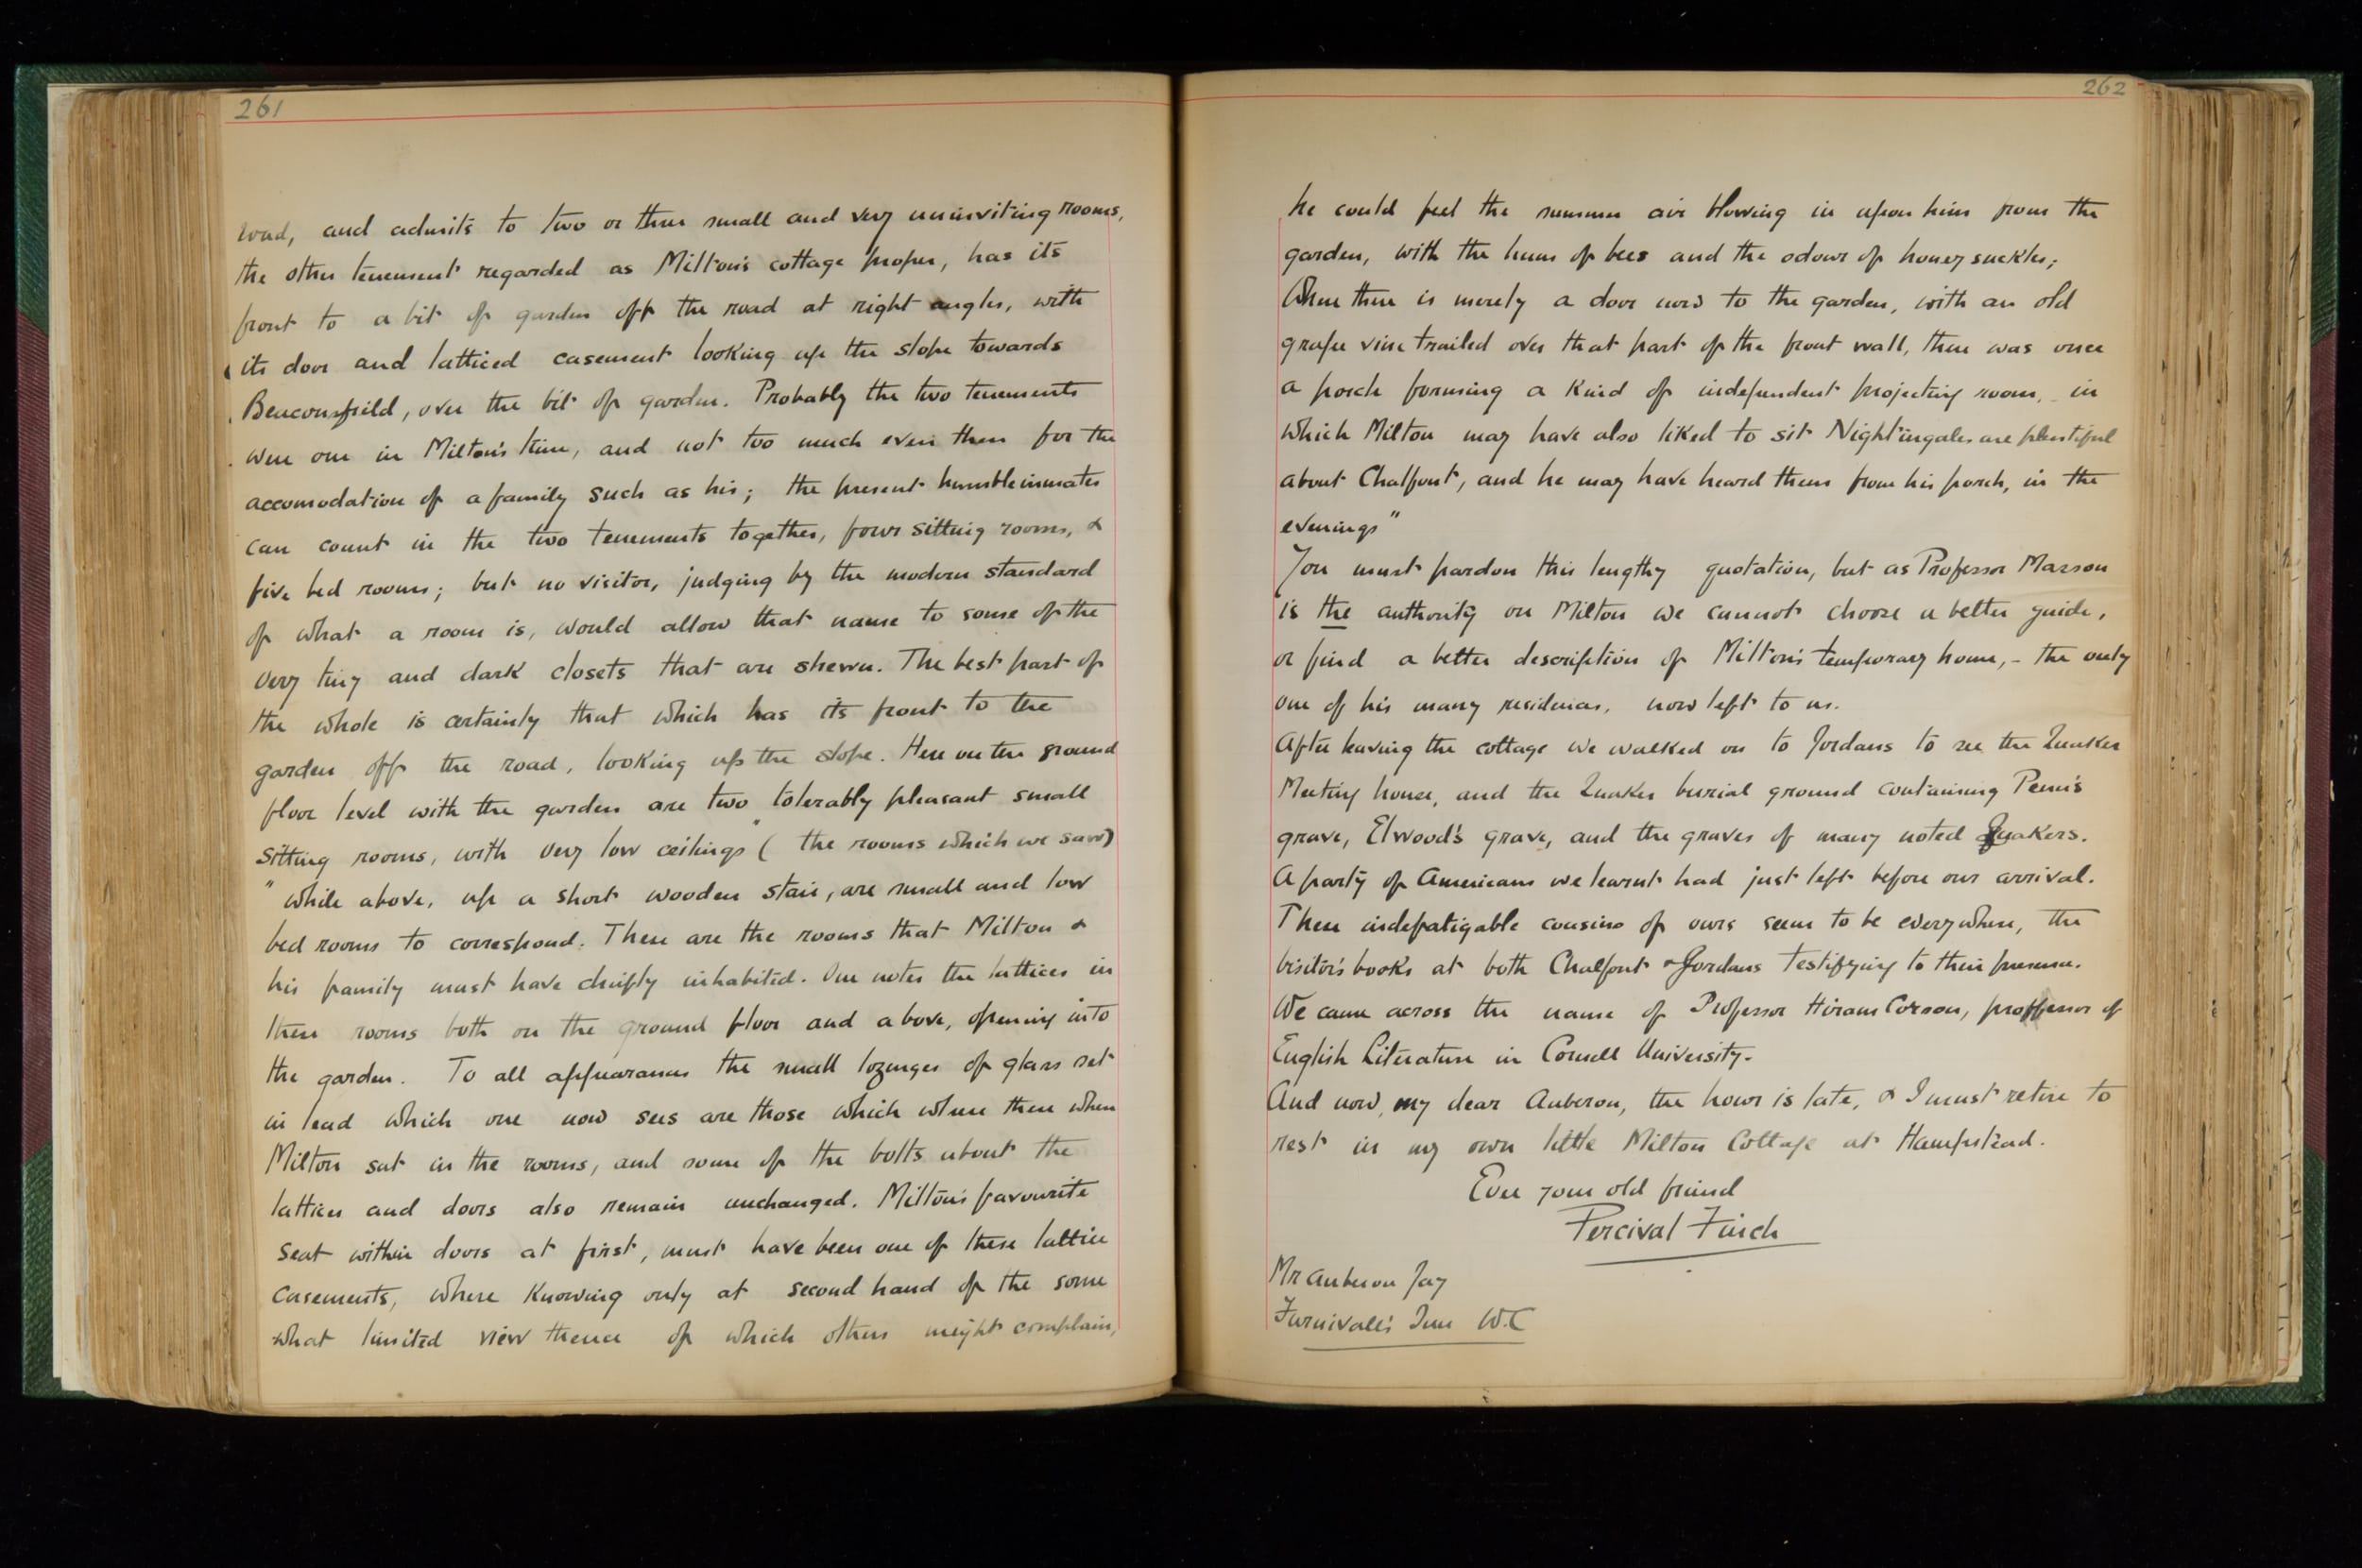 261
road, and admits to two or three small and very uninviting rooms,
the other tenement regarded as Milton's cottage proper, has its
front to a bit of garden off the road at right angles, with
its door and latticed casement looking up the slope towards
Beaconsfield, over the bit of garden. Probably the two tenements
were one in Milton's time, and not too much even then for the
accomodation of a family such as his; the present humble inmates
can count in the two tenements together, four sitting rooms, &
five bed rooms; but no visitor, judging by the modern standard
of what a room is, would allow that name to some of the
very tiny and dark closets that are shewn. The best part of
the whole is certainly that which has its front to the
garden off the road, looking up the slope. Here on the ground
floor level with the garden are two tolerably pleasant small
sitting rooms, with very low ceilings" ( the rooms which we saw)
"while above, up a short wooden stair, are small and low
bed rooms to correspond. These are the rooms that Milton &
his family must have chiefly inhabited. One notes the lattices in
these rooms both on the ground floor and above, opening into
the garden. To all appearances the small lozenges of glass set
in lead which one now sees are those which where there when
Milton sat in the rooms, and some of the bolts about the
lattices and doors also remain unchanged. Milton's favourite
seat within doors at first, must have been one of these lattice
casements, where knowing only at second hand of the some
what limited view thence of which others might complain,
262
he could feel the summer air blowing in upon him from the
garden, with the hum of bees and the odour of honey suckles;
Where there is merely a door now to the garden, with an old
grape vine trailed over that part of the front wall, there was once
a porch forming a kind of independent projecting room, in
which Milton may have also liked to sit Nightingales are plentiful
about Chalfont, and he may have heard them from his porch, in the
evenings"
You must pardon this lengthy quotation, but as Professor Masson
is the authority on Milton we cannot choose a better guide,
or find a better description of Milton's temporary home, - the only
one of his many residences, now left to us.
After leaving the cottage we walked on to Jordans to see the Quaker
Meeting house, and the Quaker burial ground containing Penn's
grave, Elwood's grave, and the graves of many noted Quakers.
A party of Americans we learnt had just left before our arrival.
These indefatigable cousins of ours seem to be everywhere, the
visitor's books at both Chalfont & Jordans testifying to their presence.
We came across the name of Professor Hiram Corson, proffessor of
English Literature in Cornell University.
And now, my dear Auberon, the hour is late, & I must retire to
rest in my own little Milton Cottage at Hampstead.
Ever your old friend
Percival Finch
Mr Auberon Jay
Furnivall's Inn W.C